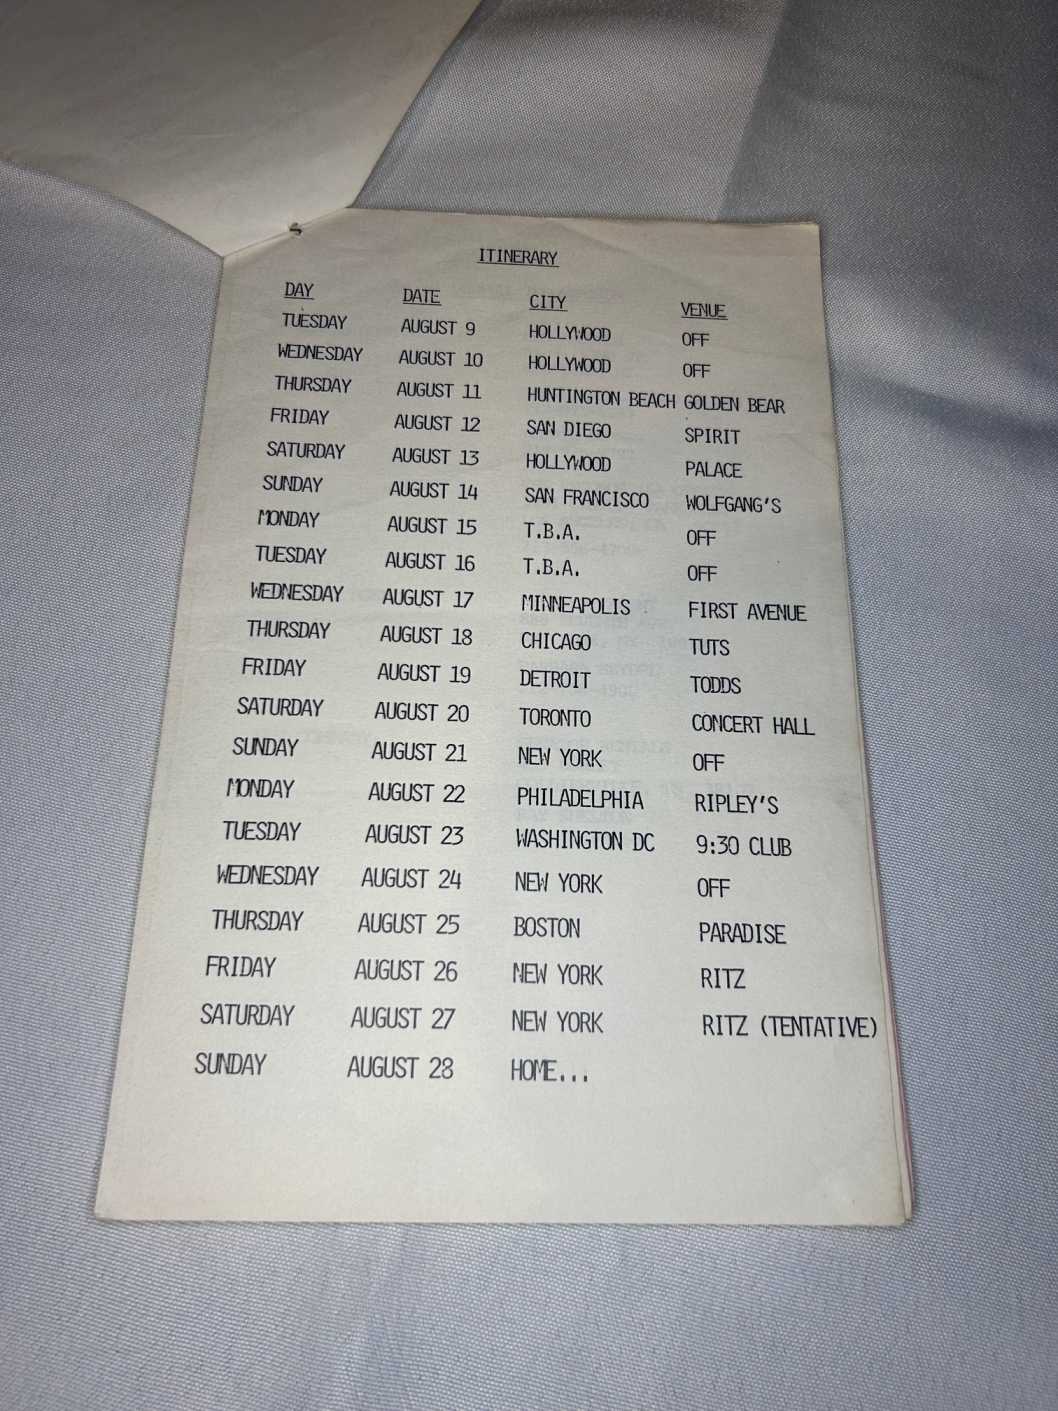 ITINERARY
DAY DATE CITY VENUE
TUESDAY AUGUST 9 HOLLYWOOD OFF
WEDNESDAY AUGUST 10 HOLLYWOOD OFF
THURSDAY AUGUST 11 HUNTINGTON BEACH GOLDEN BEAR
FRIDAY AUGUST 12 SAN DIEGO SPIRIT
SATURDAY AUGUST 13 HOLLYWOOD PALACE
SUNDAY AUGUST 14 SAN FRANCISCO WOLFGANG'S
MONDAY AUGUST 15 T.B.A. OFF
TUESDAY AUGUST 16 T.B.A. OFF
WEDNESDAY AUGUST 17 MINNEAPOLIS FIRST AVENUE
THURSDAY AUGUST 18 CHICAGO TUTS
FRIDAY AUGUST 19 DETROIT TODDS
SATURDAY AUGUST 20 TORONTO CONCERT HALL
SUNDAY AUGUST 21 NEW YORK OFF
MONDAY AUGUST 22 PHILADELPHIA RIPLEY'S
TUESDAY AUGUST 23 WASHINGTON DC 9:30 CLUB
WEDNESDAY AUGUST 24 NEW YORK OFF
THURSDAY AUGUST 25 BOSTON PARADISE
FRIDAY AUGUST 26 NEW YORK RITZ
SATURDAY AUGUST 27 NEW YORK RITZ (TENTATIVE)
SUNDAY AUGUST 28 HOME...